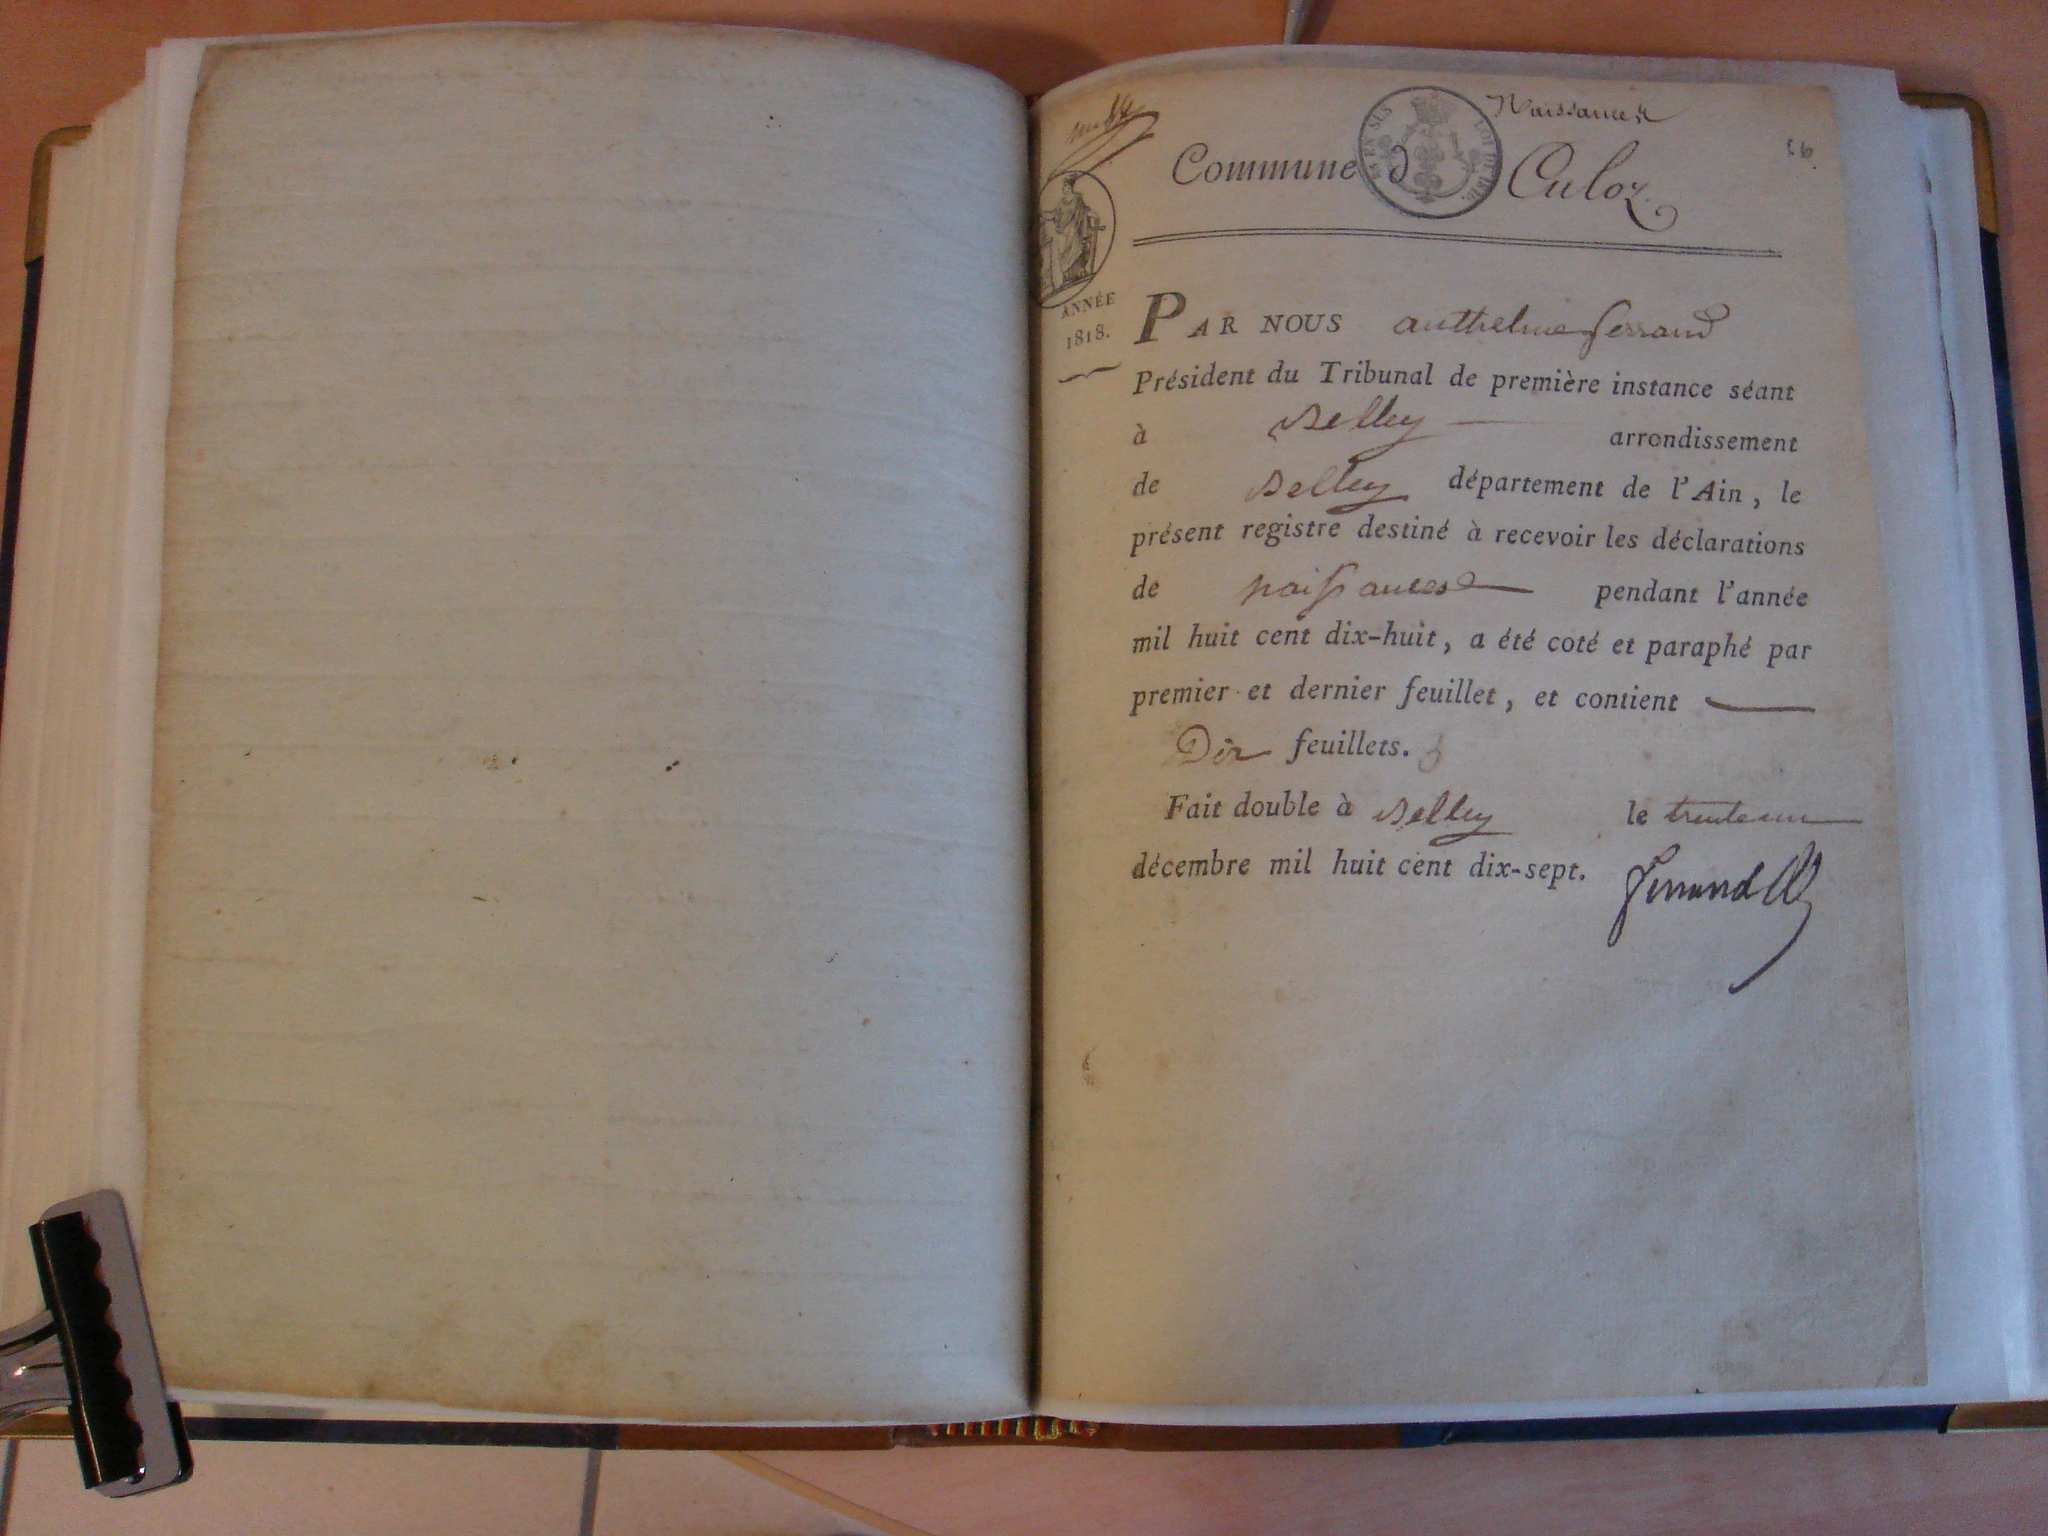 Naissances
56.
Commune d Culoz.
EN SUS
LOI DE 1816
ANNÉE
1818.
PAR NOUS anthelme ferrand
Président du Tribunal de première instance séant
à Belley arrondissement
de Belley département de l'Ain, le
présent registre destiné à recevoir les déclarations
de naissances pendant l'année
mil huit cent dix-huit, a été coté et paraphé par
premier et dernier feuillet, et contient
Dix feuillets.
Fait double à Belley le trente un
décembre mil huit cent dix-sept.
ferrand